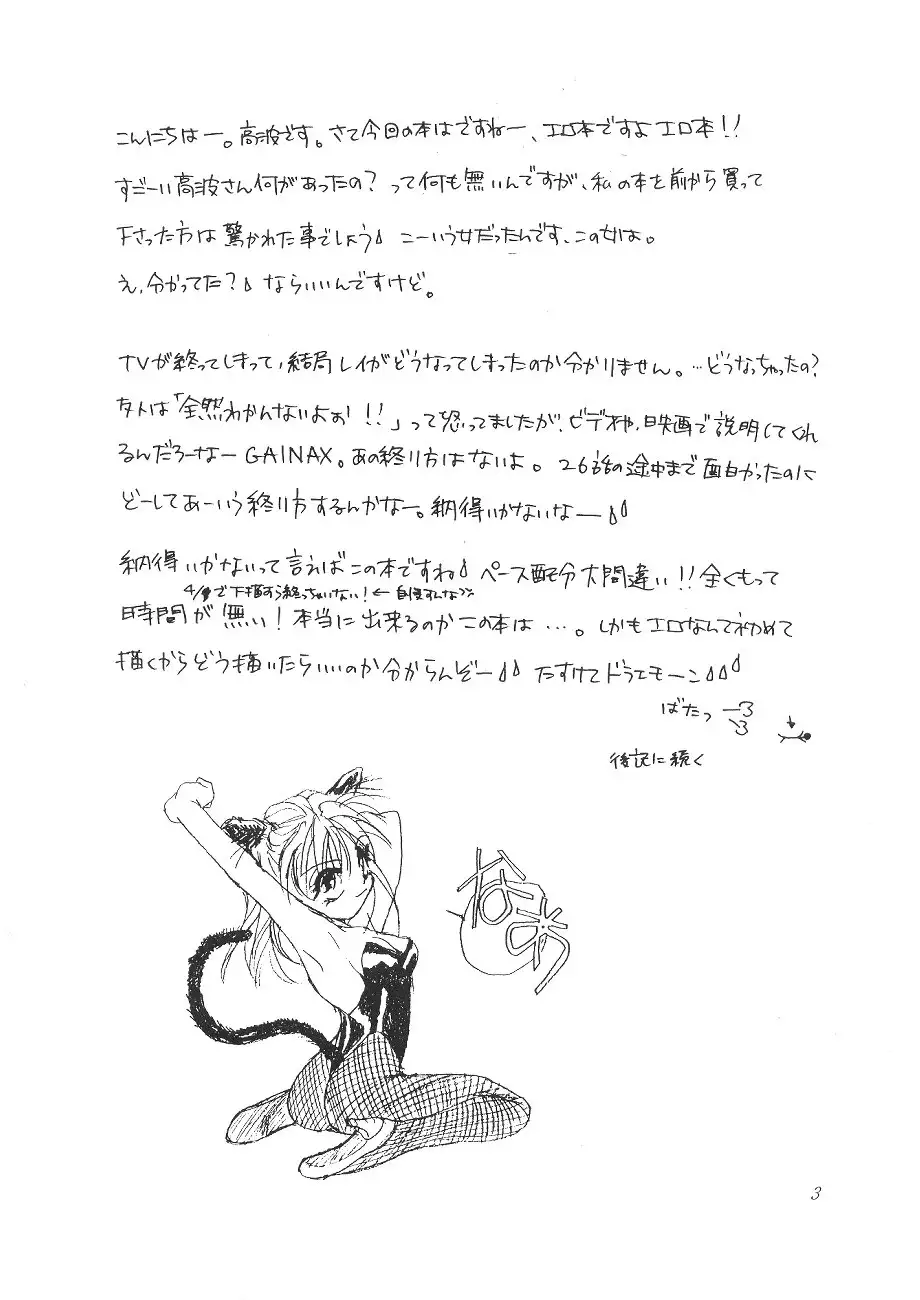 こんにちはー。高波です。さて今回の本はですねー、エロ本ですよエロ本!!
すごーい高波さん何があったの? って何も無いんですが、私の本を前から買って
下さった方は驚かれた事でしょう こーいう女だったんです、この女は。
え,分かってた? ならいいんですけど。
TVが終ってしまって,結局レイがどうなってしまったのか分かりません。…どうなっちゃったの?
友人は「全然わかんないよぉ!!」って怒ってましたが、ビデオや,映画で説明してくれ
るんだろーなー GAINAX。あの終り方はないよ。26話の途中まで面白かったのに
どーしてあーいう終り方するんかなー。納得いかないなー
納得いかないって言えばこの本ですね ペース配分大間違い!!全くもって
で下描すら終っちゃいない!← 自慢すんなっ
時間が無い!本当に出来るのかこの本は…。しかもエロなんて初めて
描くからどう描いたらいいのか分からんぞー たすけてドラエモーン
ばたっ
後記に続く
3